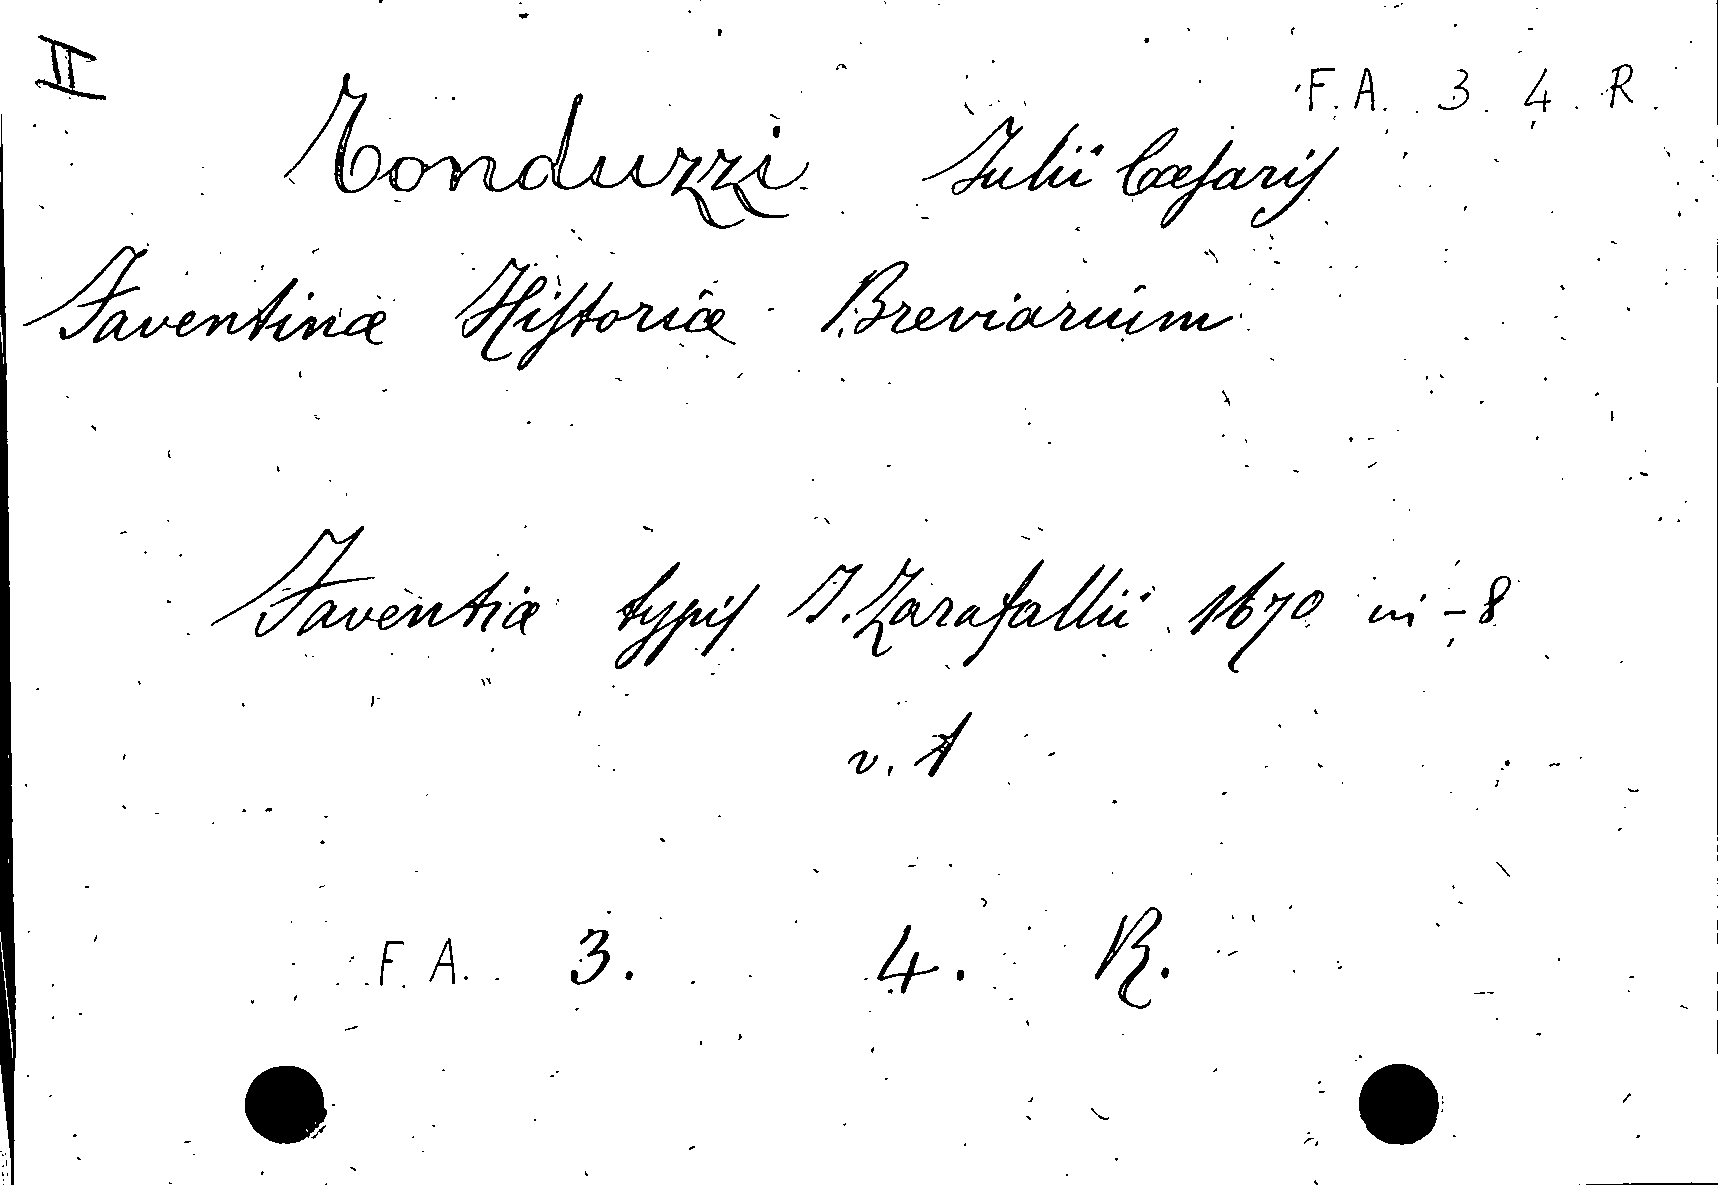 II
F. A. 3. 4. R.
Tonduzzi Julii Cæsaris
Faventinæ Historiæ Breviarium
Faventiæ typis J. Zarafallii 1670 in-8
v. 1
F. A. 3. 4. R.